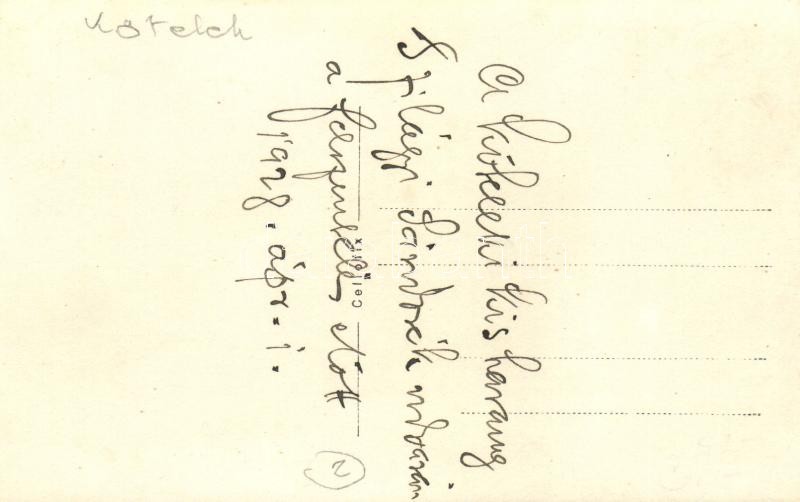 Kőtelek
A kőteleki kis harang
Szilágyi Sándorék udvarán
a felszentelés előtt
1928. ápr. 1.
Celofix
2